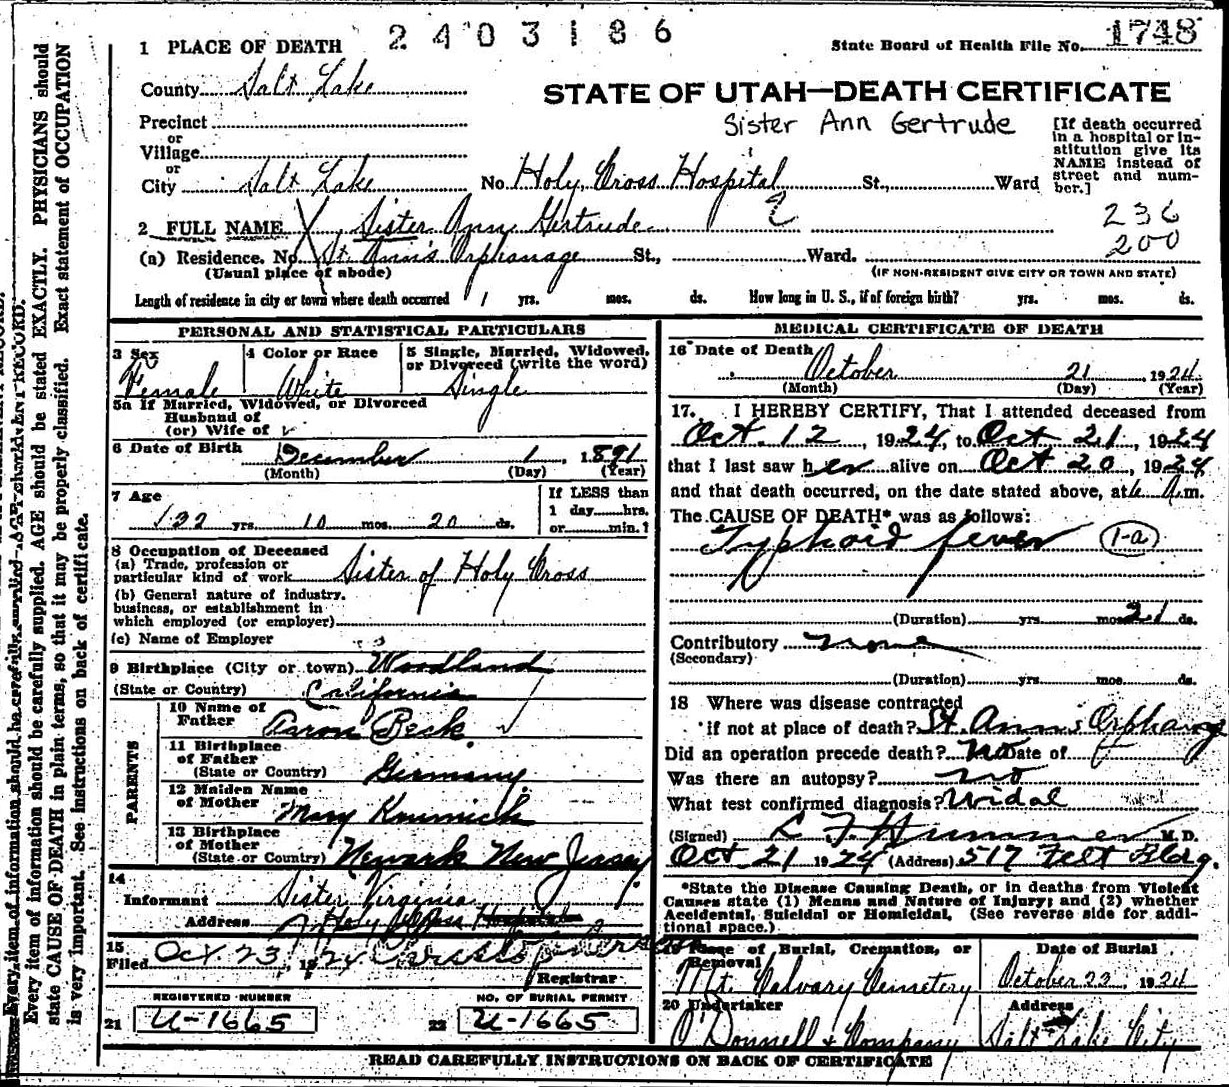 2403186
1 PLACE OF DEATH
State Board of Health File No. 1748
County Salt Lake
STATE OF UTAH—DEATH CERTIFICATE
Precinct
or
Village
or
City Salt Lake No. Holy Cross Hospital St., Ward
Sister Ann Gertrude
[If death occurred in a hospital or institution give its NAME instead of street and number.]
2 FULL NAME X Sister Ann Gertrude
236
200
(a) Residence. No. St. Ann's Orphanage St., Ward.
(Usual place of abode)
(IF NON-RESIDENT GIVE CITY OR TOWN AND STATE)
Length of residence in city or town where death occurred 1 yrs. mos. ds. How long in U. S., if of foreign birth? yrs. mos. ds.
PERSONAL AND STATISTICAL PARTICULARS
3 Sex
Female
4 Color or Race
White
5 Single, Married, Widowed, or Divorced (write the word)
Single
5a If Married, Widowed, or Divorced
Husband of
(or) Wife of
6 Date of Birth December 1, 1891
(Month) (Day) (Year)
7 Age
32 yrs. 10 mos. 20 ds.
If LESS than
1 day hrs.
or min.?
8 Occupation of Deceased
(a) Trade, profession or
particular kind of work Sister of Holy Cross
(b) General nature of industry,
business, or establishment in
which employed (or employer)
(c) Name of Employer
9 Birthplace (City or town) Woodland
(State or Country) California
PARENTS
10 Name of
Father Aaron Beck
11 Birthplace
of Father
(State or Country) Germany
12 Maiden Name
of Mother Mary
13 Birthplace
of Mother
(State or Country) Newark New Jersey
14
Informant Sister Virginia
Address Holy Cross Hospital
15
Filed Oct 23, 1924
Registrar
REGISTERED NUMBER
21 U-1665
NO. OF BURIAL PERMIT
22 U-1665
MEDICAL CERTIFICATE OF DEATH
16 Date of Death
October 21, 1924
(Month) (Day) (Year)
17. I HEREBY CERTIFY, That I attended deceased from
Oct. 12, 1924, to Oct 21, 1924
that I last saw her alive on Oct 20, 1924
and that death occurred, on the date stated above, at 6 A.m.
The CAUSE OF DEATH* was as follows:
Typhoid fever 1-a
(Duration) yrs mos 21 ds.
Contributory none
(Secondary)
(Duration) yrs mos ds.
18 Where was disease contracted
if not at place of death? St. Ann's Orphanage
Did an operation precede death? No Date of
Was there an autopsy? no
What test confirmed diagnosis? Widal
(Signed) M. D.
Oct 21 1924 (Address) 517 Felt Bldg.
*State the Disease Causing Death, or in deaths from Violent
Causes state (1) Means and Nature of Injury; and (2) whether
Accidental, Suicidal or Homicidal. (See reverse side for additional space.)
Place of Burial, Cremation, or
Removal
Mt. Calvary Cemetery
Date of Burial
October 23, 1924
20 Undertaker
O'Donnell & Company
Address
Salt Lake City
READ CAREFULLY INSTRUCTIONS ON BACK OF CERTIFICATE
Every item of information should be carefully supplied. AGE should be stated EXACTLY. PHYSICIANS should
state CAUSE OF DEATH in plain terms, so that it may be properly classified. Exact statement of OCCUPATION
is very important. See instructions on back of certificate.